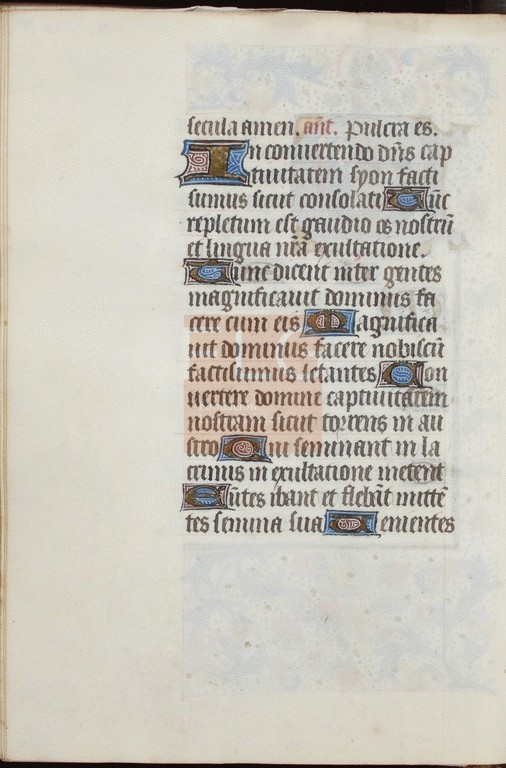 secula amen. añt. Pulcra es.
In conuertendo dñs cap
tiuitatem syon facti
sumus sicut consolati Tūc
repletum est gaudio os nostrū
et lingua nr̄a exultatione.
Tunc dicent inter gentes
magnificauit dominus fa
cere cum eis Magnifica
uit dominus facere nobiscū
facti sumus letantes Con
uertere domine captiuitatem
nostram sicut torrens in au
stro Qui seminant in la
crimis in exultatione metent
Eūtes ibant et flebāt mittē
tes semina sua Uenientes